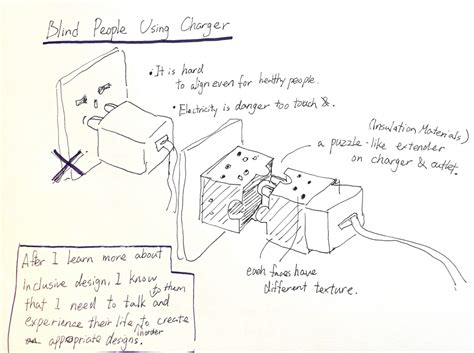 Blind People Using Charger
• It is hard
to align even for healthy people.
• Electricity is danger too touch &.
(Insulation Materials)
a puzzle-like extender
on charger & outlet.
each faces have
different texture.
After I learn more about
Inclusive design, I know
that I need to talk to them and
experience their life in order to create
appropriate designs.